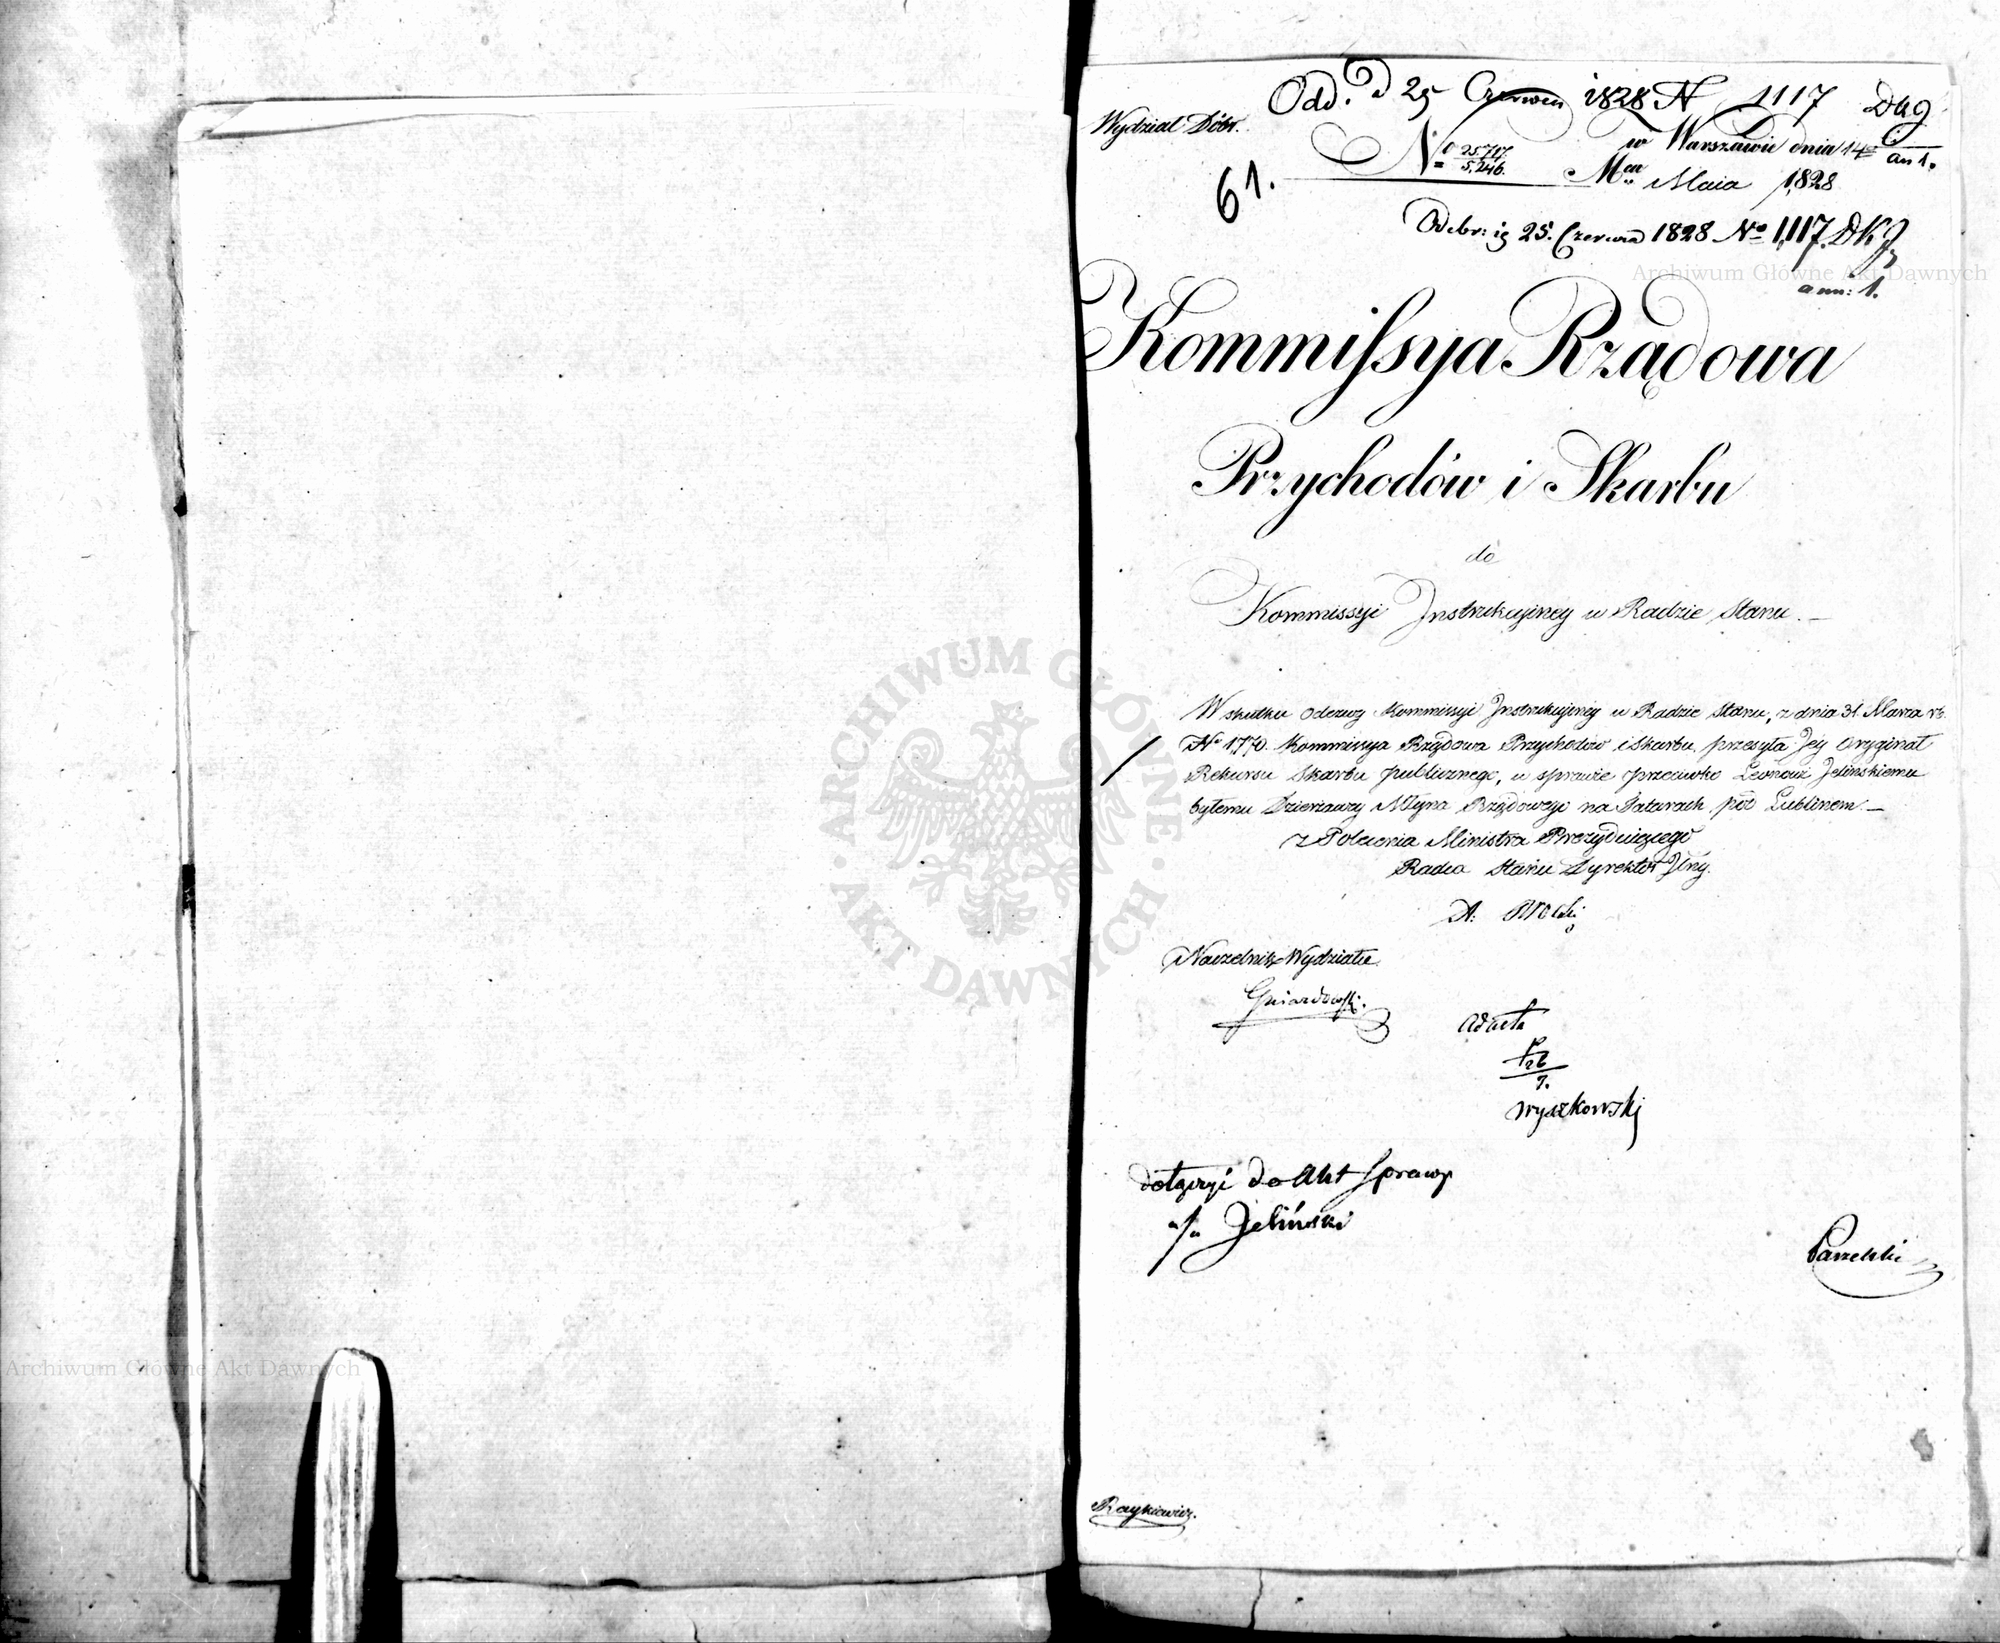 Odd. d 25 Czerwca 1828 N 1117 DKg
an 1.
Wydział Dóbr.
No 25717/5,246.
w Warszawie dnia 14
Mca Maia 1828
61.
Odebr: ig 25. Czerwca 1828 No 1,117. DKJ.
ann: 1.
Kommissya Rządowa
Przychodów i Skarbu
do
Kommissyi Instrukcyiney w Radzie Stanu. —
W skutku Odezwy Kommissyi Instrukcyiney w Radzie Stanu, z dnia 31. Marca rb.
No 1,770. Kommissya Rządowa Przychodów i Skarbu, przesyła Jey Oryginał
Rekursu Skarbu publicznego, w sprawie przeciwko Leonowi Jelińskiemu
byłemu Dzierżawcy Młyna Rządowego na Tatarach pod Lublinem. —
z Polecenia Ministra Prezyduiącego
Radca Stanu Dyrektor Jlny.
A.
Naczelnik Wydziału
Gniazdowski.
ad acta
26
9.
Wyszkowski
dołączyć do Akt sprawy
Jeliński
Raykiewicz.
ARCHIWUM GŁÓWNE
AKT DAWNYCH
Archiwum Główne Akt Dawnych
Archiwum Główne Akt Dawnych